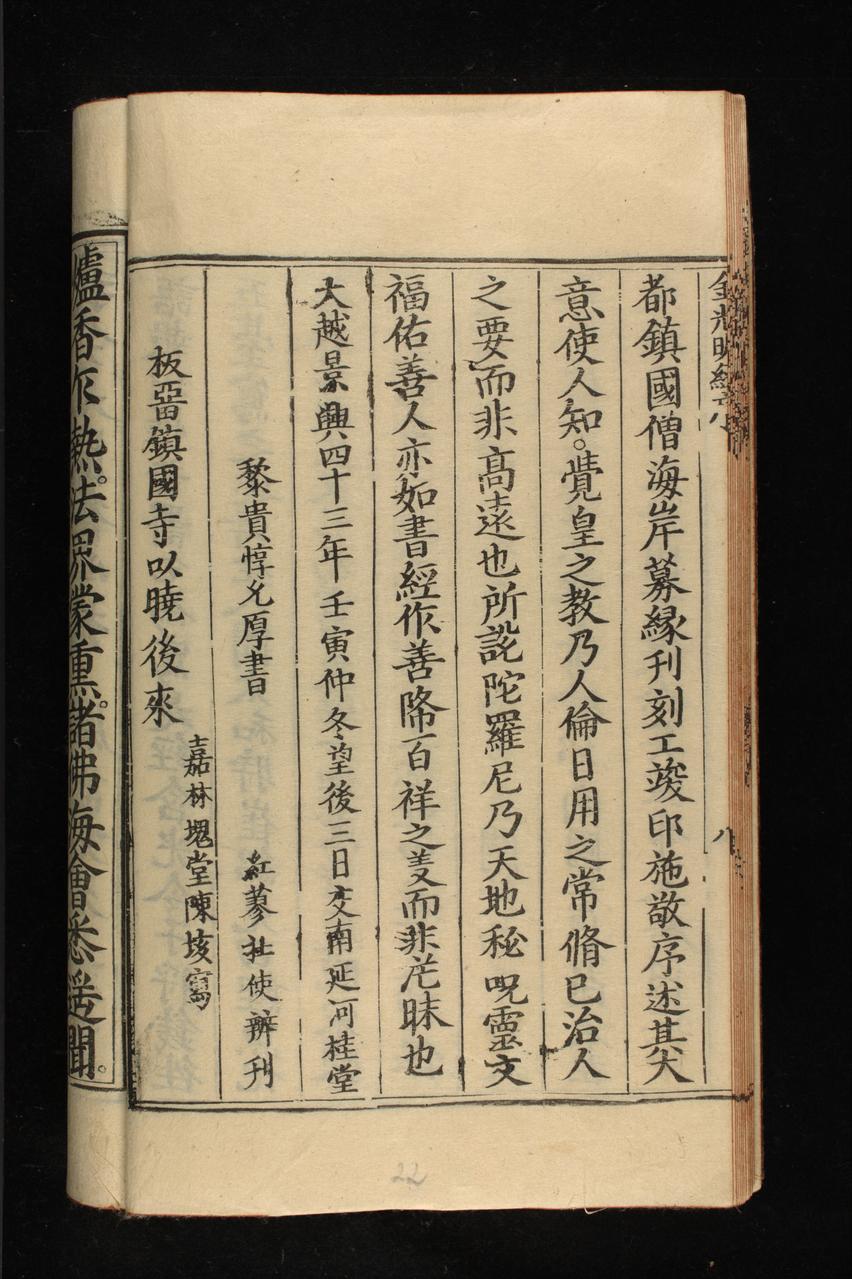 金光明經序
八
都鎮國僧海岸募緣刊刻工竣印施敬序述其大
意使人知。覺皇之教乃人倫日用之常脩已治人
之要而非高遠也所說陀羅尼乃天地秘呪靈文
福佑善人亦如書經作善降百祥之義而非茫昧也
大越景興四十三年壬寅仲冬望後三日交南延河桂堂
黎貴惇允厚書
紅蓼社使辨刊
嘉林塊堂陳垓寫
板畱鎮國寺以曉後來
爐香乍熱。法界蒙熏。諸佛海會悉遥聞。
22